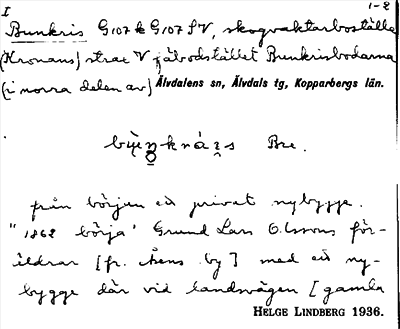 I 1-2
Bunkris G107k G107 SV, skogvaktarboställe
(Kronans) strax V fäbodstället Bunkrisbodarna
(i norra delen av) Älvdalens sn, Älvdals tg, Kopparbergs län.
Bre.
från början ett privat nybygge.
"1862 börja' Grund Lars Olssons för-
äldrar [fr. Åsens by] med ett ny-
bygge där vid landsvägen [gamla
HELGE LINDBERG 1936.